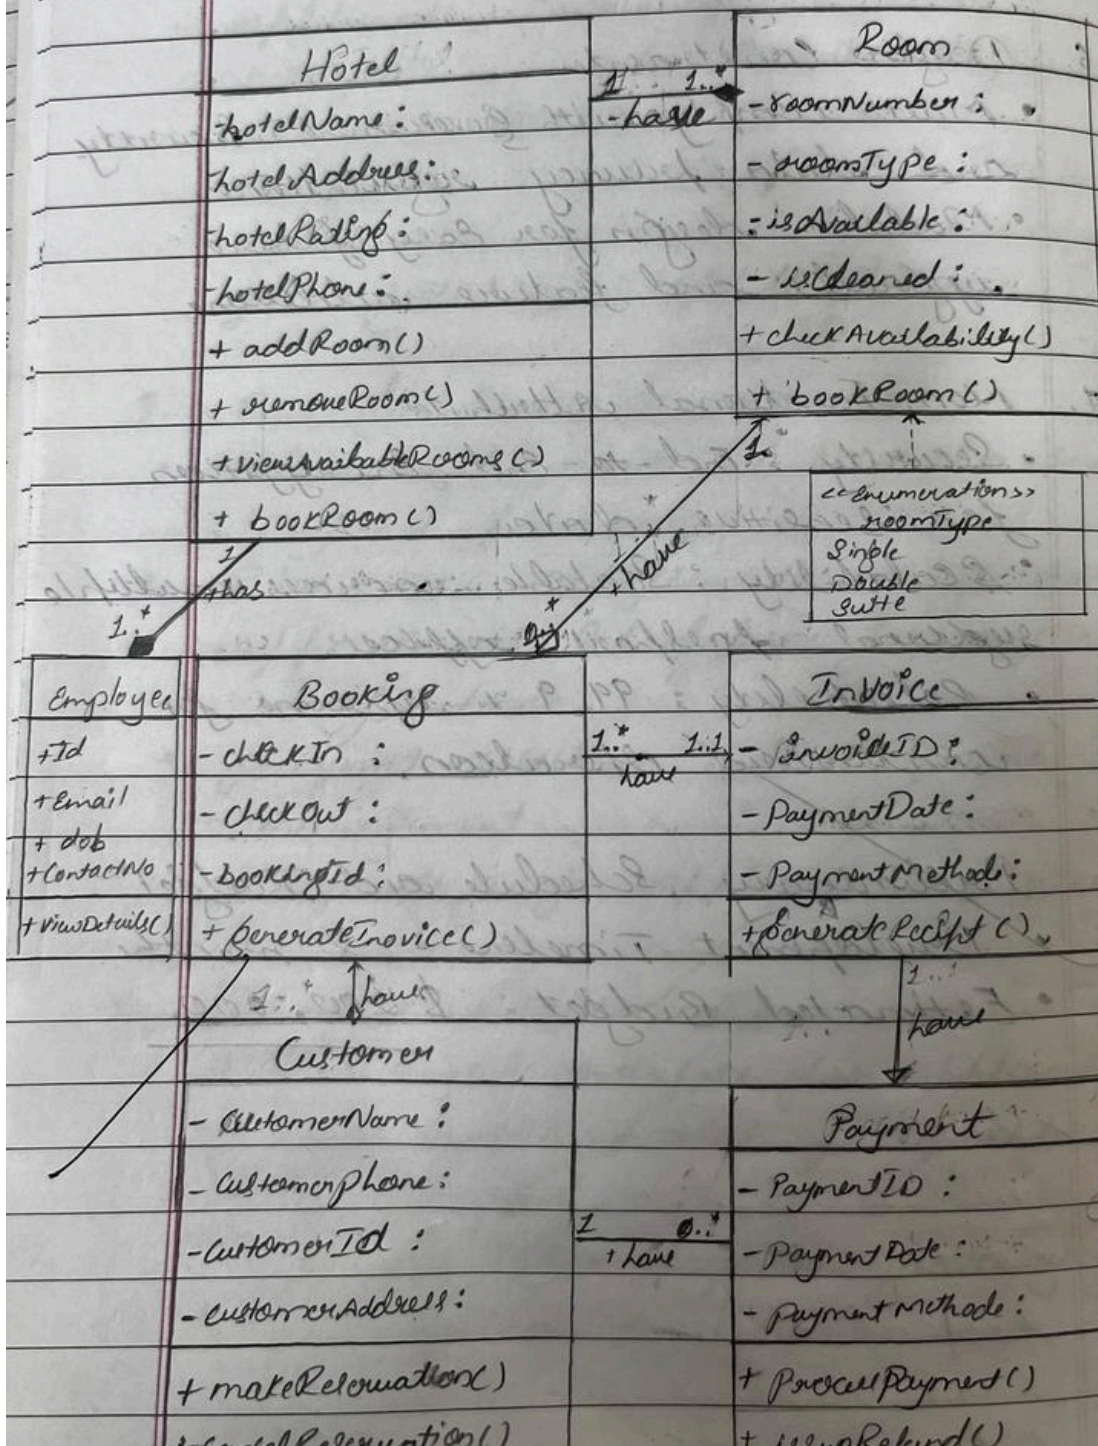 Hotel
-hotelName:
hotelAddress:
-hotelRating:
-hotelPhone:
+ addRoom()
+ removeRoom()
+ viewAvaibableRooms()
+ bookRoom()
1 1..*
-have
Room
-roomNumber:
- roomType:
- isAvailable:
- isCleaned:
+ checkAvailability()
+ bookRoom()
<<Enumerations>>
roomType
Single
Double
Suite
1
+has
1..*
1.
+have
Employee
+Id
+Email
+ dob
+ContactNo
+viewDetails()
Booking
- checkIn :
- checkout :
-bookingId:
+ generateInovice()
1..* 1..1
have
Invoice
- invoiceID:
- PaymentDate:
- PaymentMethode:
+generateRecipt()
1..*
have
1..
have
Customer
- CustomerName:
- CustomerPhone:
-CustomerId :
- customerAddress:
+ makeReservation()
1 0..*
+ have
Payment
- PaymentID :
- PaymentDate:
- PaymentMethode:
+ ProcessPayment()